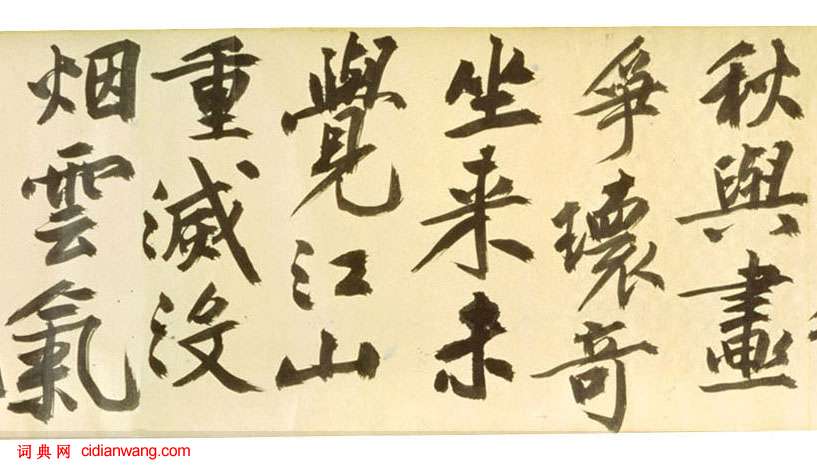 秋與畫
爭壞奇
坐来未
覺江山
重滅没
烟雲氣
词典网 cidianwang.com